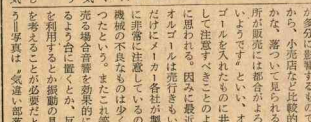 が分に影響するもの
から、小売店など比較的
かな、落ついて見られる
所が販売には都合がよろ
いようです」といい、オ
ゴールを入れたものに共
して注意すべきことのよ
に思われる。因みに最近
オルゴールは売行きも
だけにメーカー各社が製
に非常に注意しているの
機械の不良なものは少
つたという。またこれを
売る場合音を効果的に
るよう台に置くとか、反
を利用するとか振動の
を考えることが必要だと
＝写真は〝気違い部落